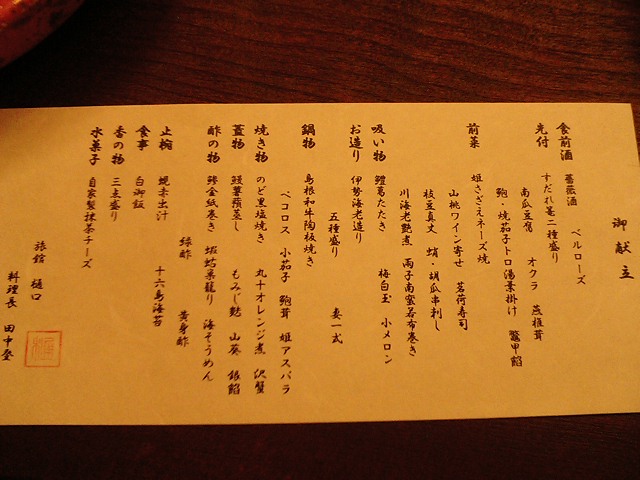 御献立
食前酒 薔薇酒 ベルローズ
先付 すだれ麩二種盛り
南瓜豆腐 オクラ 燕椎茸
鮑・焼茄子トロ湯葉掛け 鼈甲餡
前菜 姫さざえネーズ焼
山桃ワイン寄せ 茗荷寿司
枝豆真丈 蛸・胡瓜串刺し
川海老艶煮 南子南蛮若布巻き
吸い物 鱧葛たたき 梅白玉 小メロン
お造り 伊勢海老造り
五種盛り 妻一式
鍋物 島根和牛陶板焼き
ペコロス 小茄子 鮑茸 姫アスパラ
焼き物 のど黒塩焼き 丸十オレンジ煮 沢蟹
蓋物 鰻蓮蒸し もみじ麩 山葵 銀餡
酢の物 鱧金紙巻き 蝦蛄巣籠り 海そうめん
緑酢 黄身酢
止椀 蜆赤出汁 十六島海苔
食事 白御飯
香の物 三点盛り
水菓子 自家製抹茶チーズ
旅館 樋口
料理長 田中登